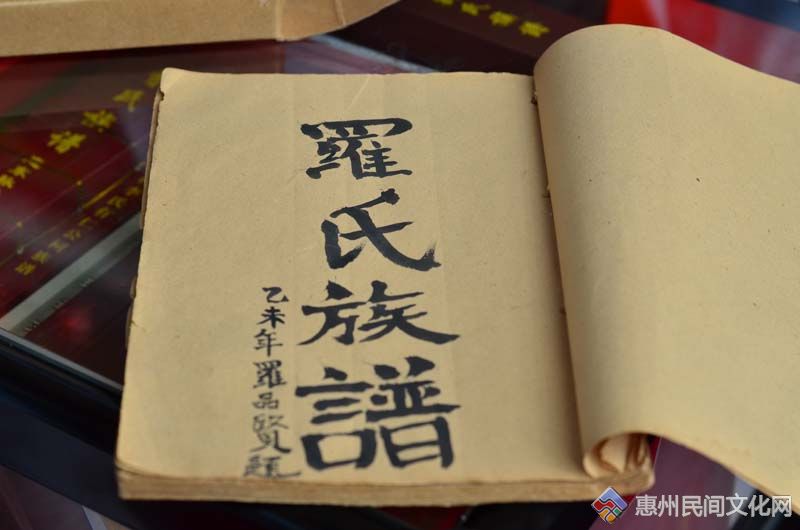 羅氏族譜
乙未年羅品賢題
惠州民间文化网